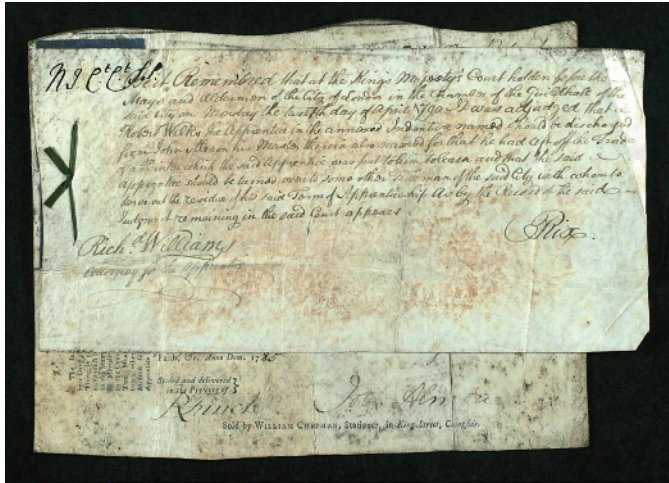 Be it Remembered that at the Kings Majesty's Court holden before the
Mayor and Aldermen of the City of London in the Chamber of the Guildhall of the
said City on Monday the twelfth day of April 1790 It was adjudged that
Robert Wilks the Apprentice in the annexed Indenture named should be discharged
from John his Master therein also named for that he had left off the Trade
of a which the said Apprentice was put to him to learn and that the said
Apprentice should be turned over to some other Freeman of the said City with whom to
serve out the residue of his said Term of Apprenticeship As by the Record of the said
Judgment remaining in the said Court appears
Rix.
Rich.d Williams
Attorney for the Apprentice
Faith, &c. Anno Dom. 178
Sealed and delivered
in the Presence of
Sold by WILLIAM CHAPMAN, Stationer, in King-Street, Cheapside.